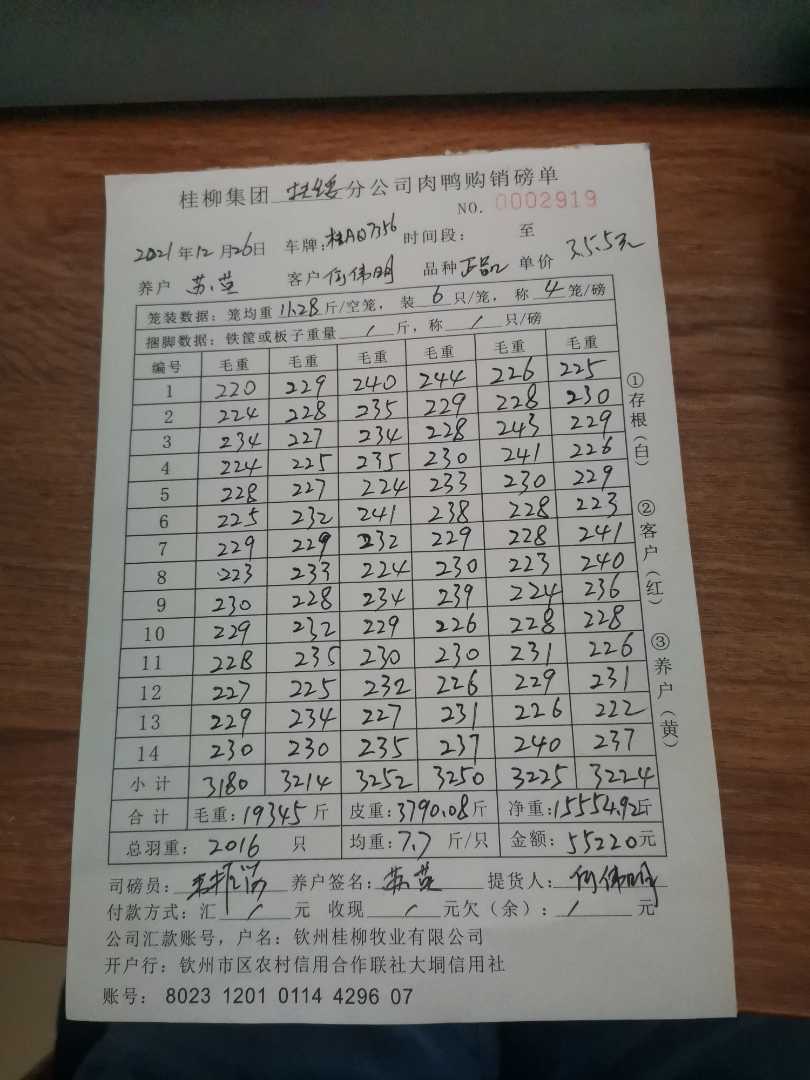 桂柳集团 分公司肉鸭购销磅单
NO. 0002919
2021年12月26日 车牌:桂AQ7356 时间段: 至
养户 苏莲 客户 何伟明 品种 正品 单价 3.5.5元
笼装数据:笼均重11.28斤/空笼,装6只/笼,称4笼/磅
捆脚数据:铁筐或板子重量/斤,称/只/磅
编号 毛重 毛重 毛重 毛重 毛重 毛重
1 220 229 240 244 226 225
2 224 228 235 229 228 230
3 234 227 234 228 243 229
4 224 225 235 230 241 226
5 228 227 224 233 230 229
6 225 232 241 238 228 223
7 229 229 232 229 228 241
8 223 233 224 230 223 240
9 230 228 234 239 224 236
10 229 232 229 226 228 228
11 228 235 230 230 231 226
12 227 225 232 226 229 231
13 229 234 227 231 226 222
14 230 230 235 237 240 237
小计 3180 3214 3252 3250 3225 3224
合计 毛重:19345斤 皮重:3790.08斤 净重:15554.92斤
总羽重:2016只 均重:7.7斤/只 金额:55220元
司磅员: 养户签名:苏莲 提货人:何伟明
付款方式:汇/元 收现/元欠(余):/元
公司汇款账号,户名:钦州桂柳牧业有限公司
开户行:钦州市区农村信用合作联社大垌信用社
账号:8023 1201 0114 4296 07
①存根(白)
②客户(红)
③养户(黄)